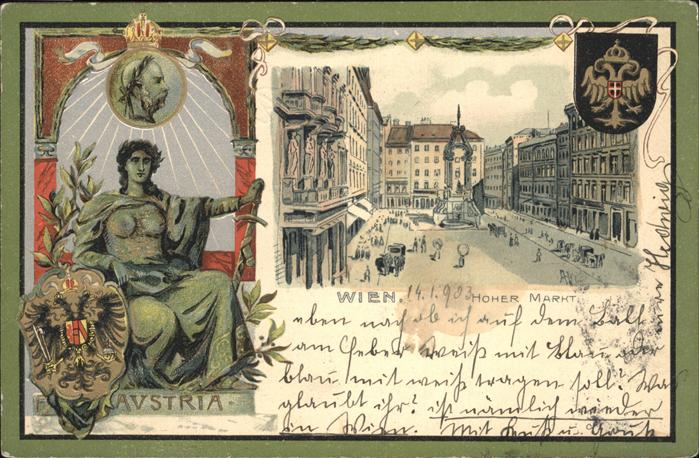 AVSTRIA
WIEN, 14.1.903 HOHER MARKT
eben nach ob ich auf dem Ball
am weiß mit blau oder
blau mit weiß tragen soll? Was
glaubt ihr? ist nämlich wieder
in Wien. Mit Gruß u.
Hedwig